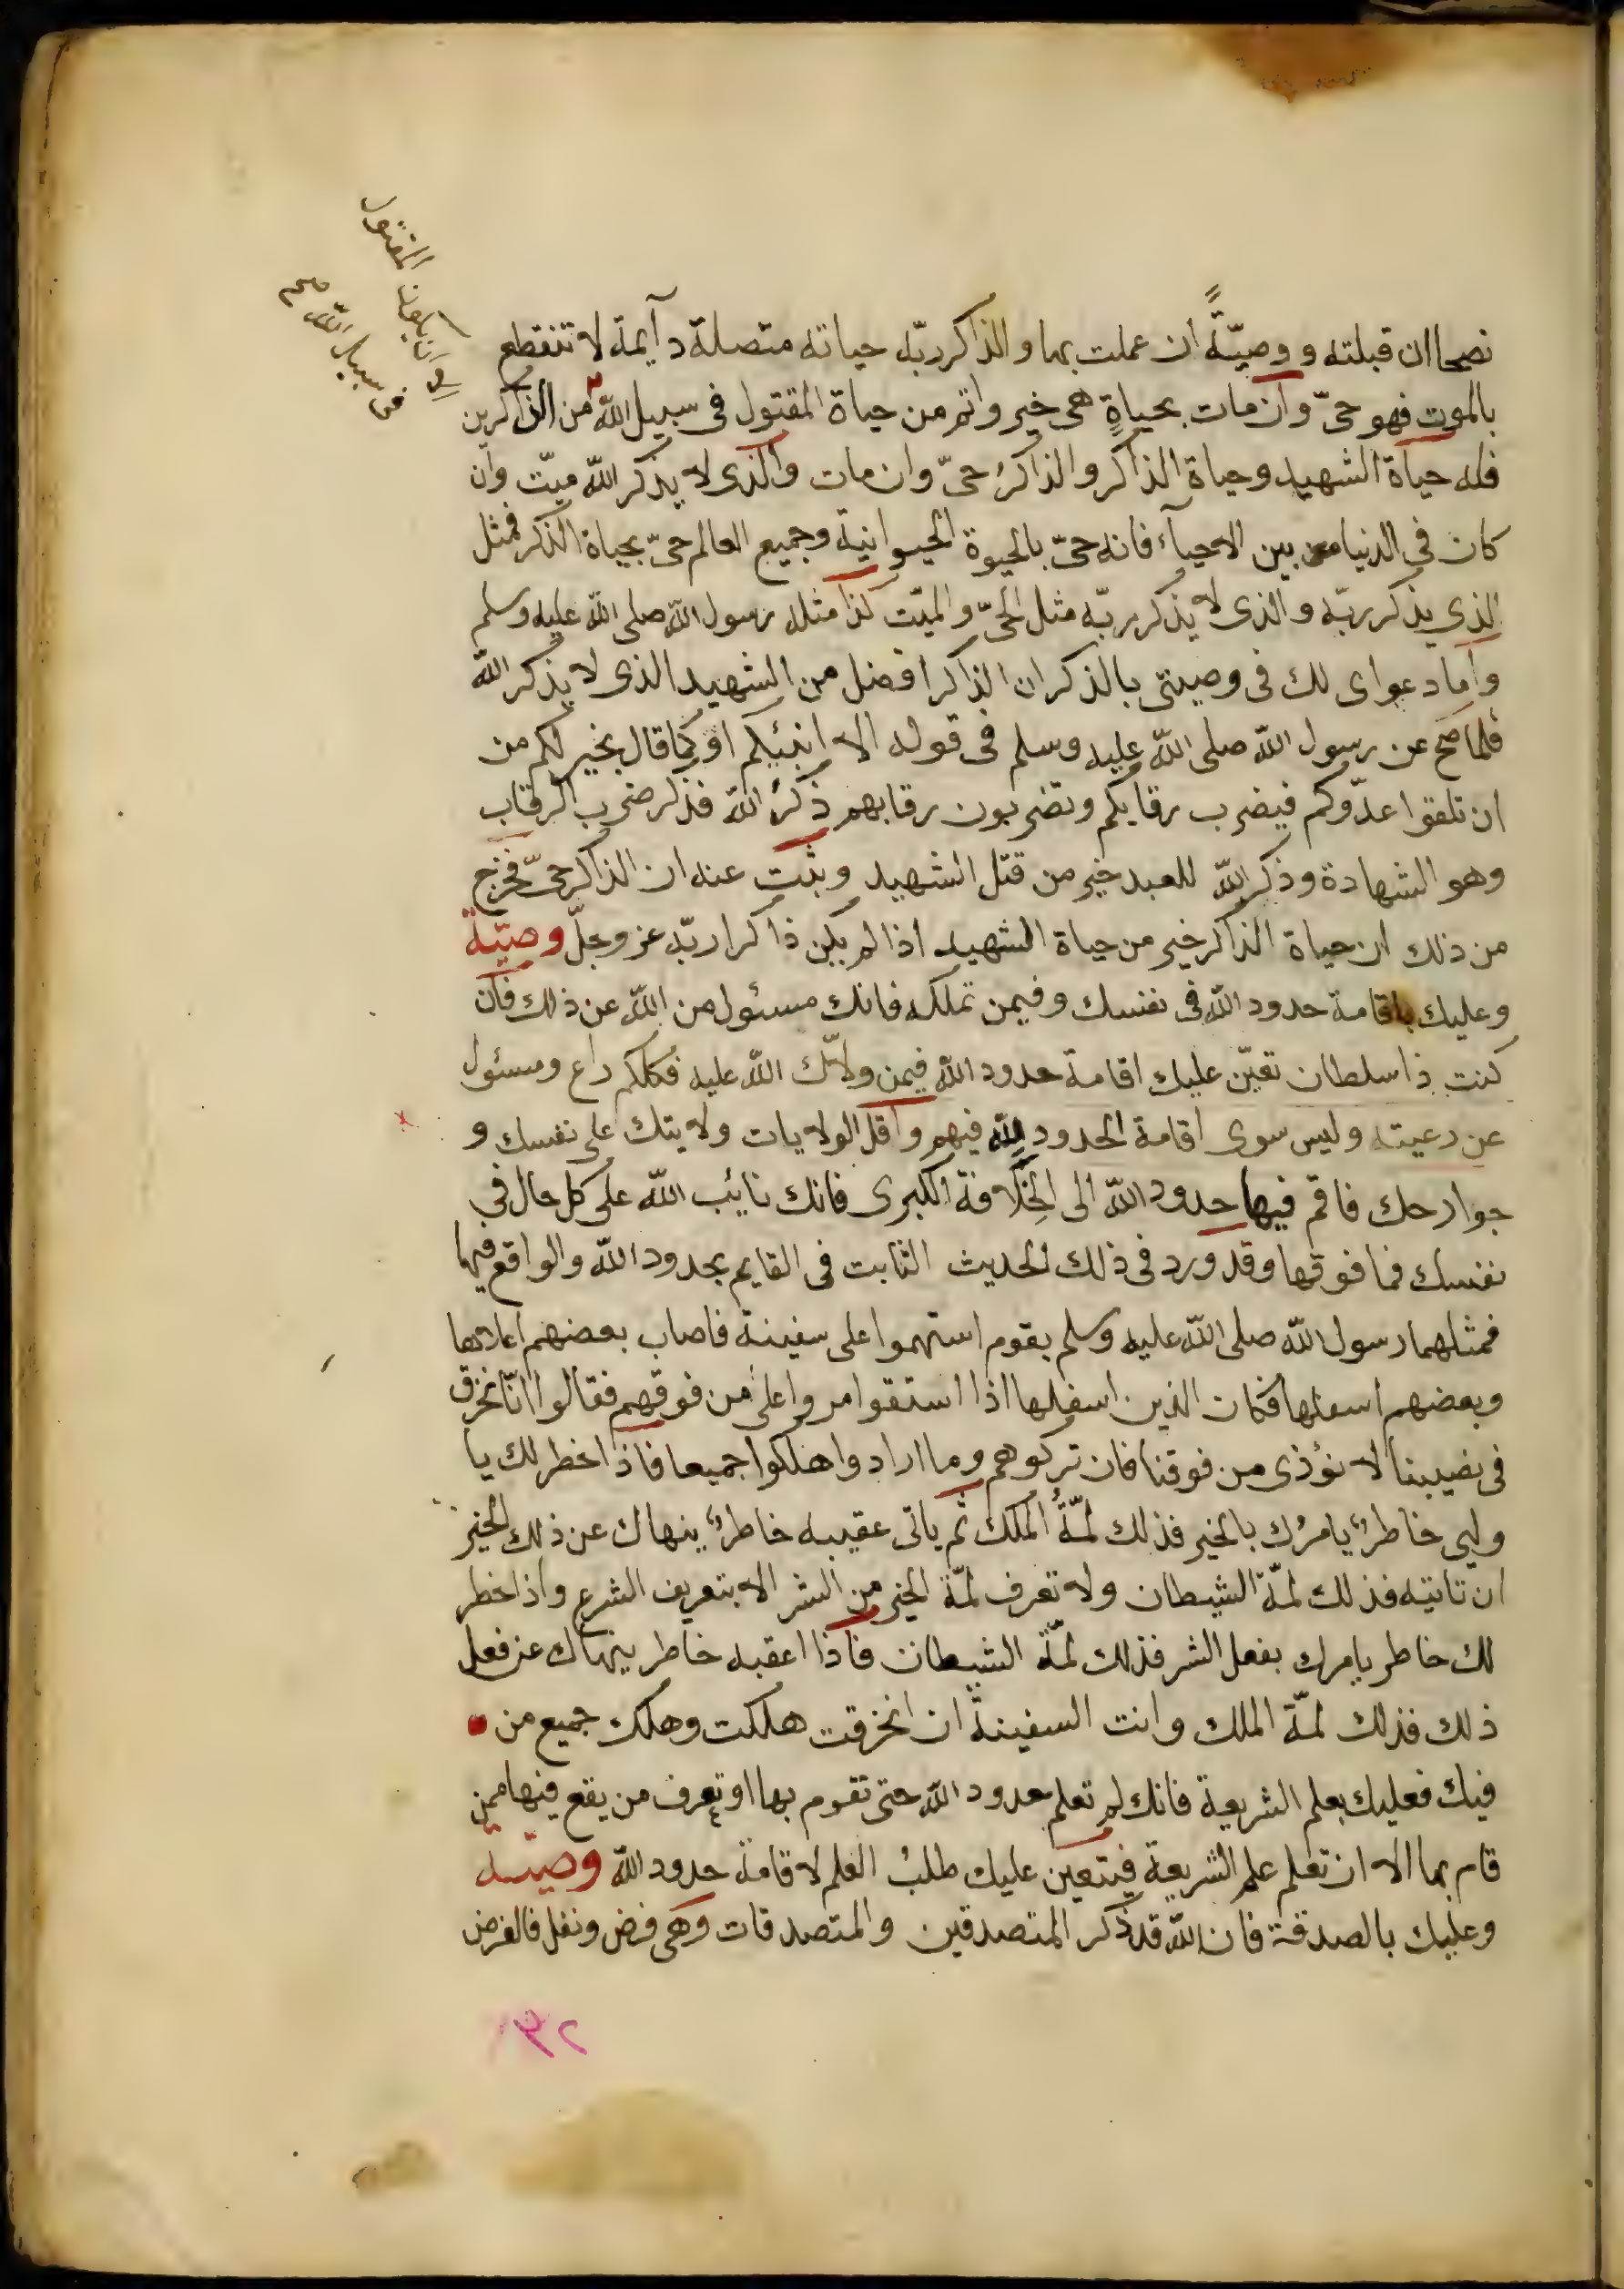 الا ان يكون المقتول
فى سبيل الله صح
نصحا ان قبلته و وصيّةً ان عملت بها و الذاكر ربّه حياته متصلة دآيمة لا تنقطع
بالموت فهو حىّ وان مات بحياةٍ هى خير واتم من حياة المقتول فى سبيل الله من الذاكرين
فله حياة الشهيد وحياة الذاكر والذاكرُ حىّ وان مات والذى لا يذكر الله ميّت وان
كان فى الدنيا من بين الاحيآء فانه حىّ بالحيوة الحيوانية وجميع العالم حىّ بحياة الذكر فمثل
الذى يذكر ربّه والذى لا يذكر ربّه مثل الحىّ والميّت كذا مثله رسول الله صلى الله عليه وسلم
واما دعواى لك فى وصيتى بالذكر ان الذاكر افضل من الشهيد الذى لا يذكر الله
فلما صح عن رسول الله صلى الله عليه وسلم فى قوله الا انبئكم او كما قال بخير لكم من
ان تلقوا عدّوكم فيضرب رقابكم وتضربون رقابهم ذكرُ الله فذكر ضرب الرقاب
وهو الشهادة وذكر الله للعبد خير من قتل الشهيد وثبت عنه ان الذاكر حىّ فخرج
من ذلك ان حياة الذاكر خير من حياة الشهيد اذا لم يكن ذاكرا ربّه عز وجلّ وصيّة
وعليك باقامة حدود الله فى نفسك وفيمن تملكه فانك مسئول من الله عن ذلك فان
كنت ذا سلطان تعيّن عليك اقامة حدود الله فيمن ولاّك الله عليه فكلكم راع ومسئول
عن رعيته وليس سوى اقامة الحدود لله فيهم واقل الولايات ولايتك على نفسك و
جوارحك فاقم فيها حدود الله الى الخِلافة الكبرى فانك نائب الله على كل حال فى
نفسك فما فوقها وقد ورد فى ذلك الحديث الثابت فى القايم بحدود الله والواقع فيها
فمثلهما رسول الله صلى الله عليه وسلم بقوم استهموا على سفينة فاصاب بعضهم اعلاها
وبعضهم اسفلها فكان الذين اسفلها اذا استقوا مروا على من فوقهم فقالوا انّا نخرق
فى نصيبنا لا نؤذى من فوقنا فان تركوهم وما ارادوا هلكوا جميعا فاذا خطر لك يا
وليى خاطرٌ يامرُك بالخير فذلك لمّةُ الملك ثم ياتى عقيبه خاطرٌ ينهاك عن ذلك الخير
ان تاتيه فذلك لمّة الشيطان ولا تعرف لمّة الخير من الشر الا بتعريف الشرع واذا خطر
لك خاطر يامرك بفعل الشر فذلك لمّة الشيطان فاذا اعقبه خاطر ينهاك عن فعل
ذلك فذلك لمّة الملك وانت السفينة ان انخرقت هلكت وهلك جميع من
فيك فعليك بعلم الشريعة فانك لم تعلم حدود الله حتى تقوم بها او تعرف من يقع فيها ممن
قام بها الا ان تعلم علم الشريعة فيتعين عليك طلبُ العلم لاقامة حدود الله وصيّه
وعليك بالصدقة فان الله قد ذكر المتصدقين والمتصدقات وهى فرض ونفل فالفرض